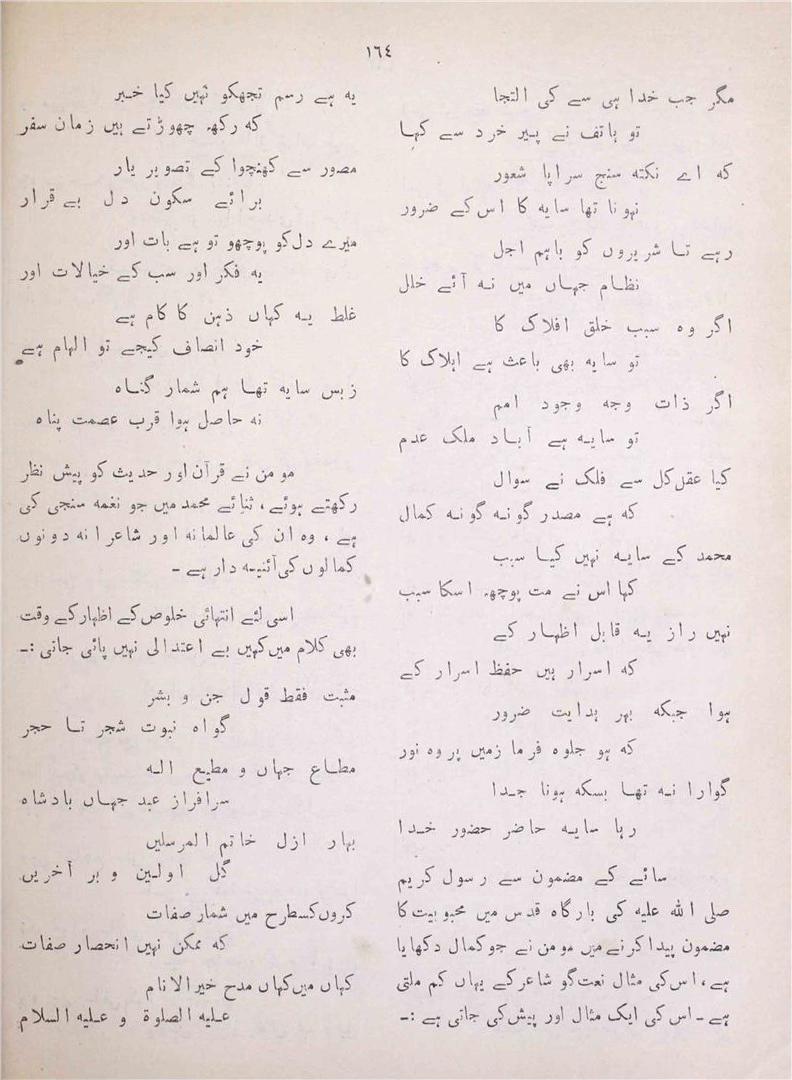 ١٦٤
مگر جب خدا ہی سے کی التجا
تو ہاتف نے پیر خرد سے کہا
کہ اے نکتہ سنج سراپا شعور
نہونا تھا سایہ کا اس کے ضرور
رہے تا شریروں کو باہم اجل
نظام جہاں میں نہ آئے خلل
اگر وہ سبب خلق افلاک کا
تو سایہ بھی باعث ہے اہلاک کا
اگر ذات وجہ وجود امم
تو سایہ ہے آباد ملک عدم
کیا عقل کل سے فلک نے سوال
کہ ہے مصدر گونہ گونہ کمال
محمد کے سایہ نہیں کیا سبب
کہا اس نے مت پوچھ اسکا سبب
نہیں راز یہ قابل اظہار کے
کہ اسرار ہیں حفظ اسرار کے
ہوا جبکہ بہر ہدایت ضرور
کہ ہو جلوہ فرما زمیں پر وہ نور
گوارا نہ تھا بسکہ ہونا جدا
رہا سایہ حاضر حضور خدا
سائے کے مضمون سے رسول کریم
صلی اللہ علیہ کی بارگاہ قدس میں محبوبیت کا
مضمون پیدا کرنے میں مومن نے جو کمال دکھایا
ہے، اس کی مثال نعت گو شاعر کے یہاں کم ملتی
ہے ۔ اس کی ایک مثال اور پیش کی جاتی ہے :۔
یہ ہے رسم تجھکو نہیں کیا خبر
کہ رکھ چھوڑتے ہیں زمان سفر
مصور سے کھنچوا کے تصویر یار
برائے سکون دل بے قرار
میرے دل کو پوچھو تو ہے بات اور
یہ فکر اور سب کے خیالات اور
غلط یہ کہاں ذہن کا کام ہے
خود انصاف کیجے تو الہام ہے
زبس سایہ تھا ہم شمار گناہ
نہ حاصل ہوا قرب عصمت پناہ
مومن نے قرآن اور حدیث کو پیش نظر
رکھتے ہوئے، ثنائے محمد میں جو نغمہ سنجی کی
ہے، وہ ان کی عالمانہ اور شاعرانہ دونوں
کمالوں کی آئنیہ دار ہے ۔
اسی لئے انتہائی خلوص کے اظہار کے وقت
بھی کلام میں کہیں بے اعتدالی نہیں پائی جاتی :۔
مثبت فقط قول جن و بشر
گواہ نبوت شجر تا حجر
مطاع جہاں و مطیع الہ
سرافراز عبد جہاں بادشاہ
بہار ازل خاتم المرسلیں
گل اولین و بر آخریں
کروں کسطرح میں شمار صفات
کہ ممکن نہیں انحصار صفات
کہاں میں کہاں مدح خیر الانام
علیہ الصلوۃ و علیہ السلام